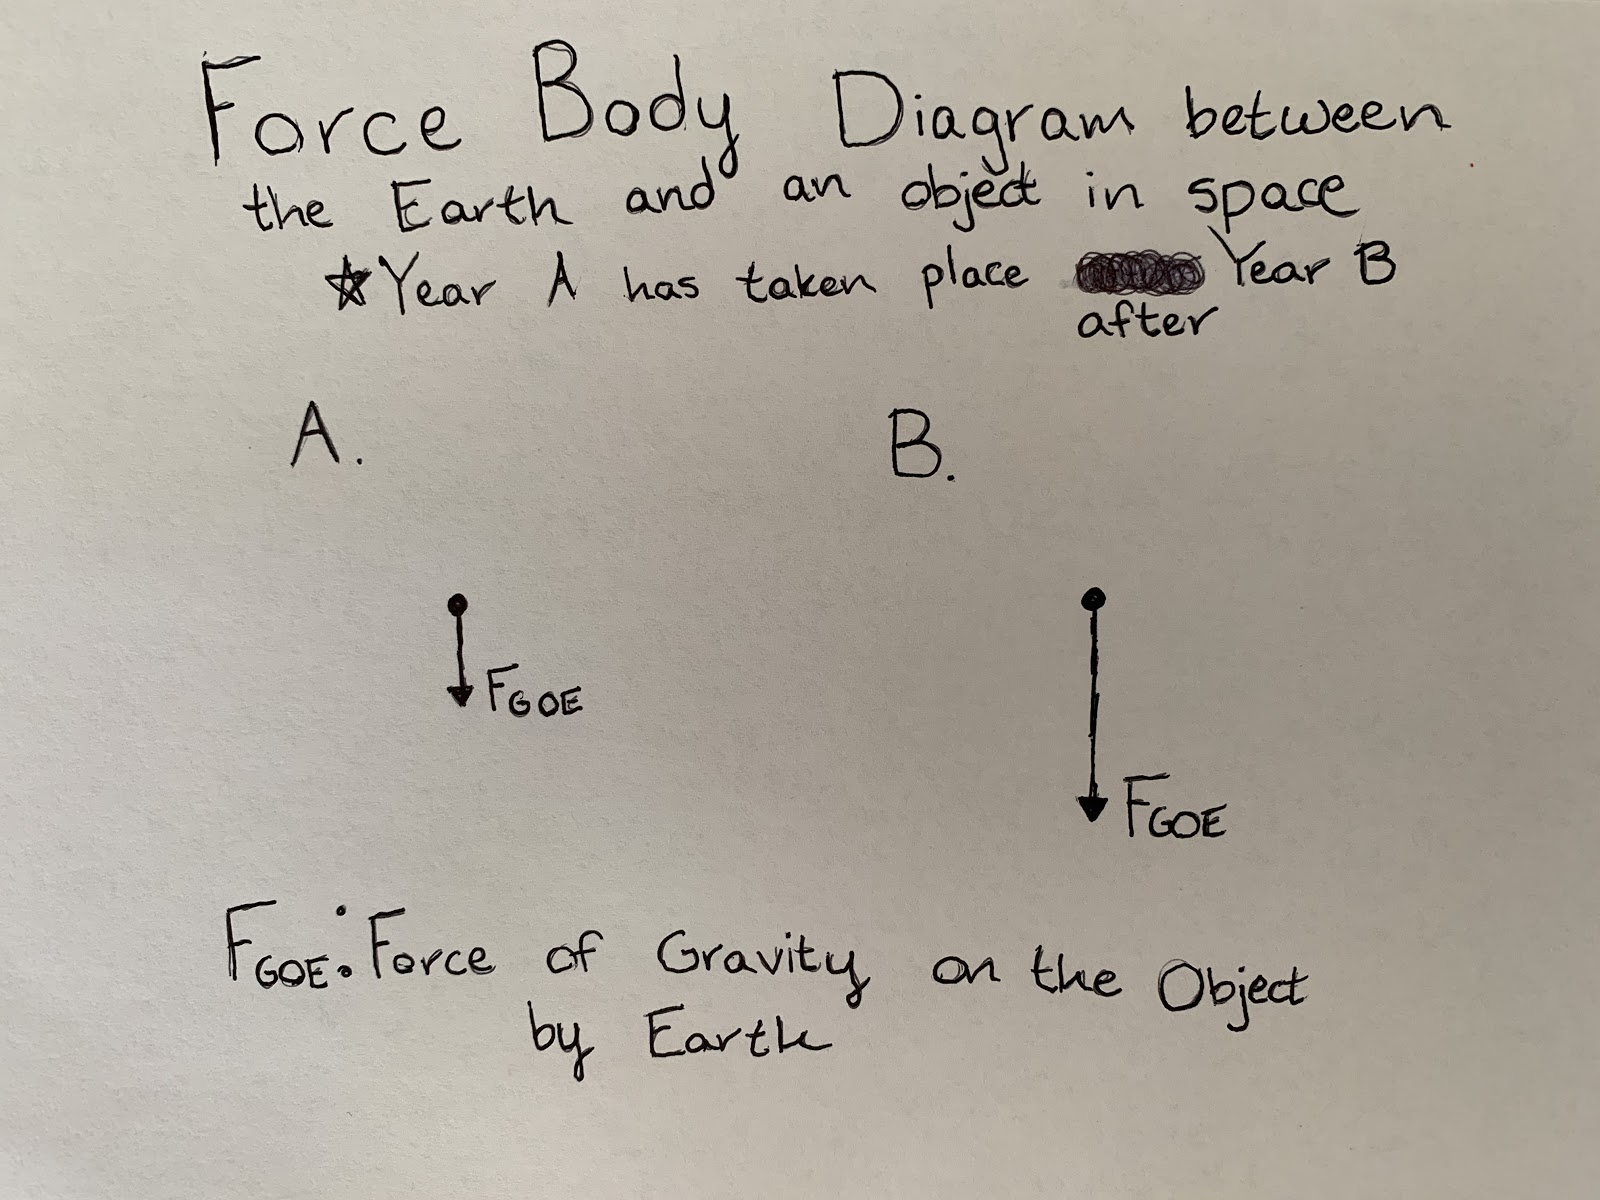 Force Body Diagram between
the Earth and an object in space
☆Year A has taken place Year B
after
A.
B.
FGOE
FGOE
FGOE: Force of Gravity on the Object
by Earth